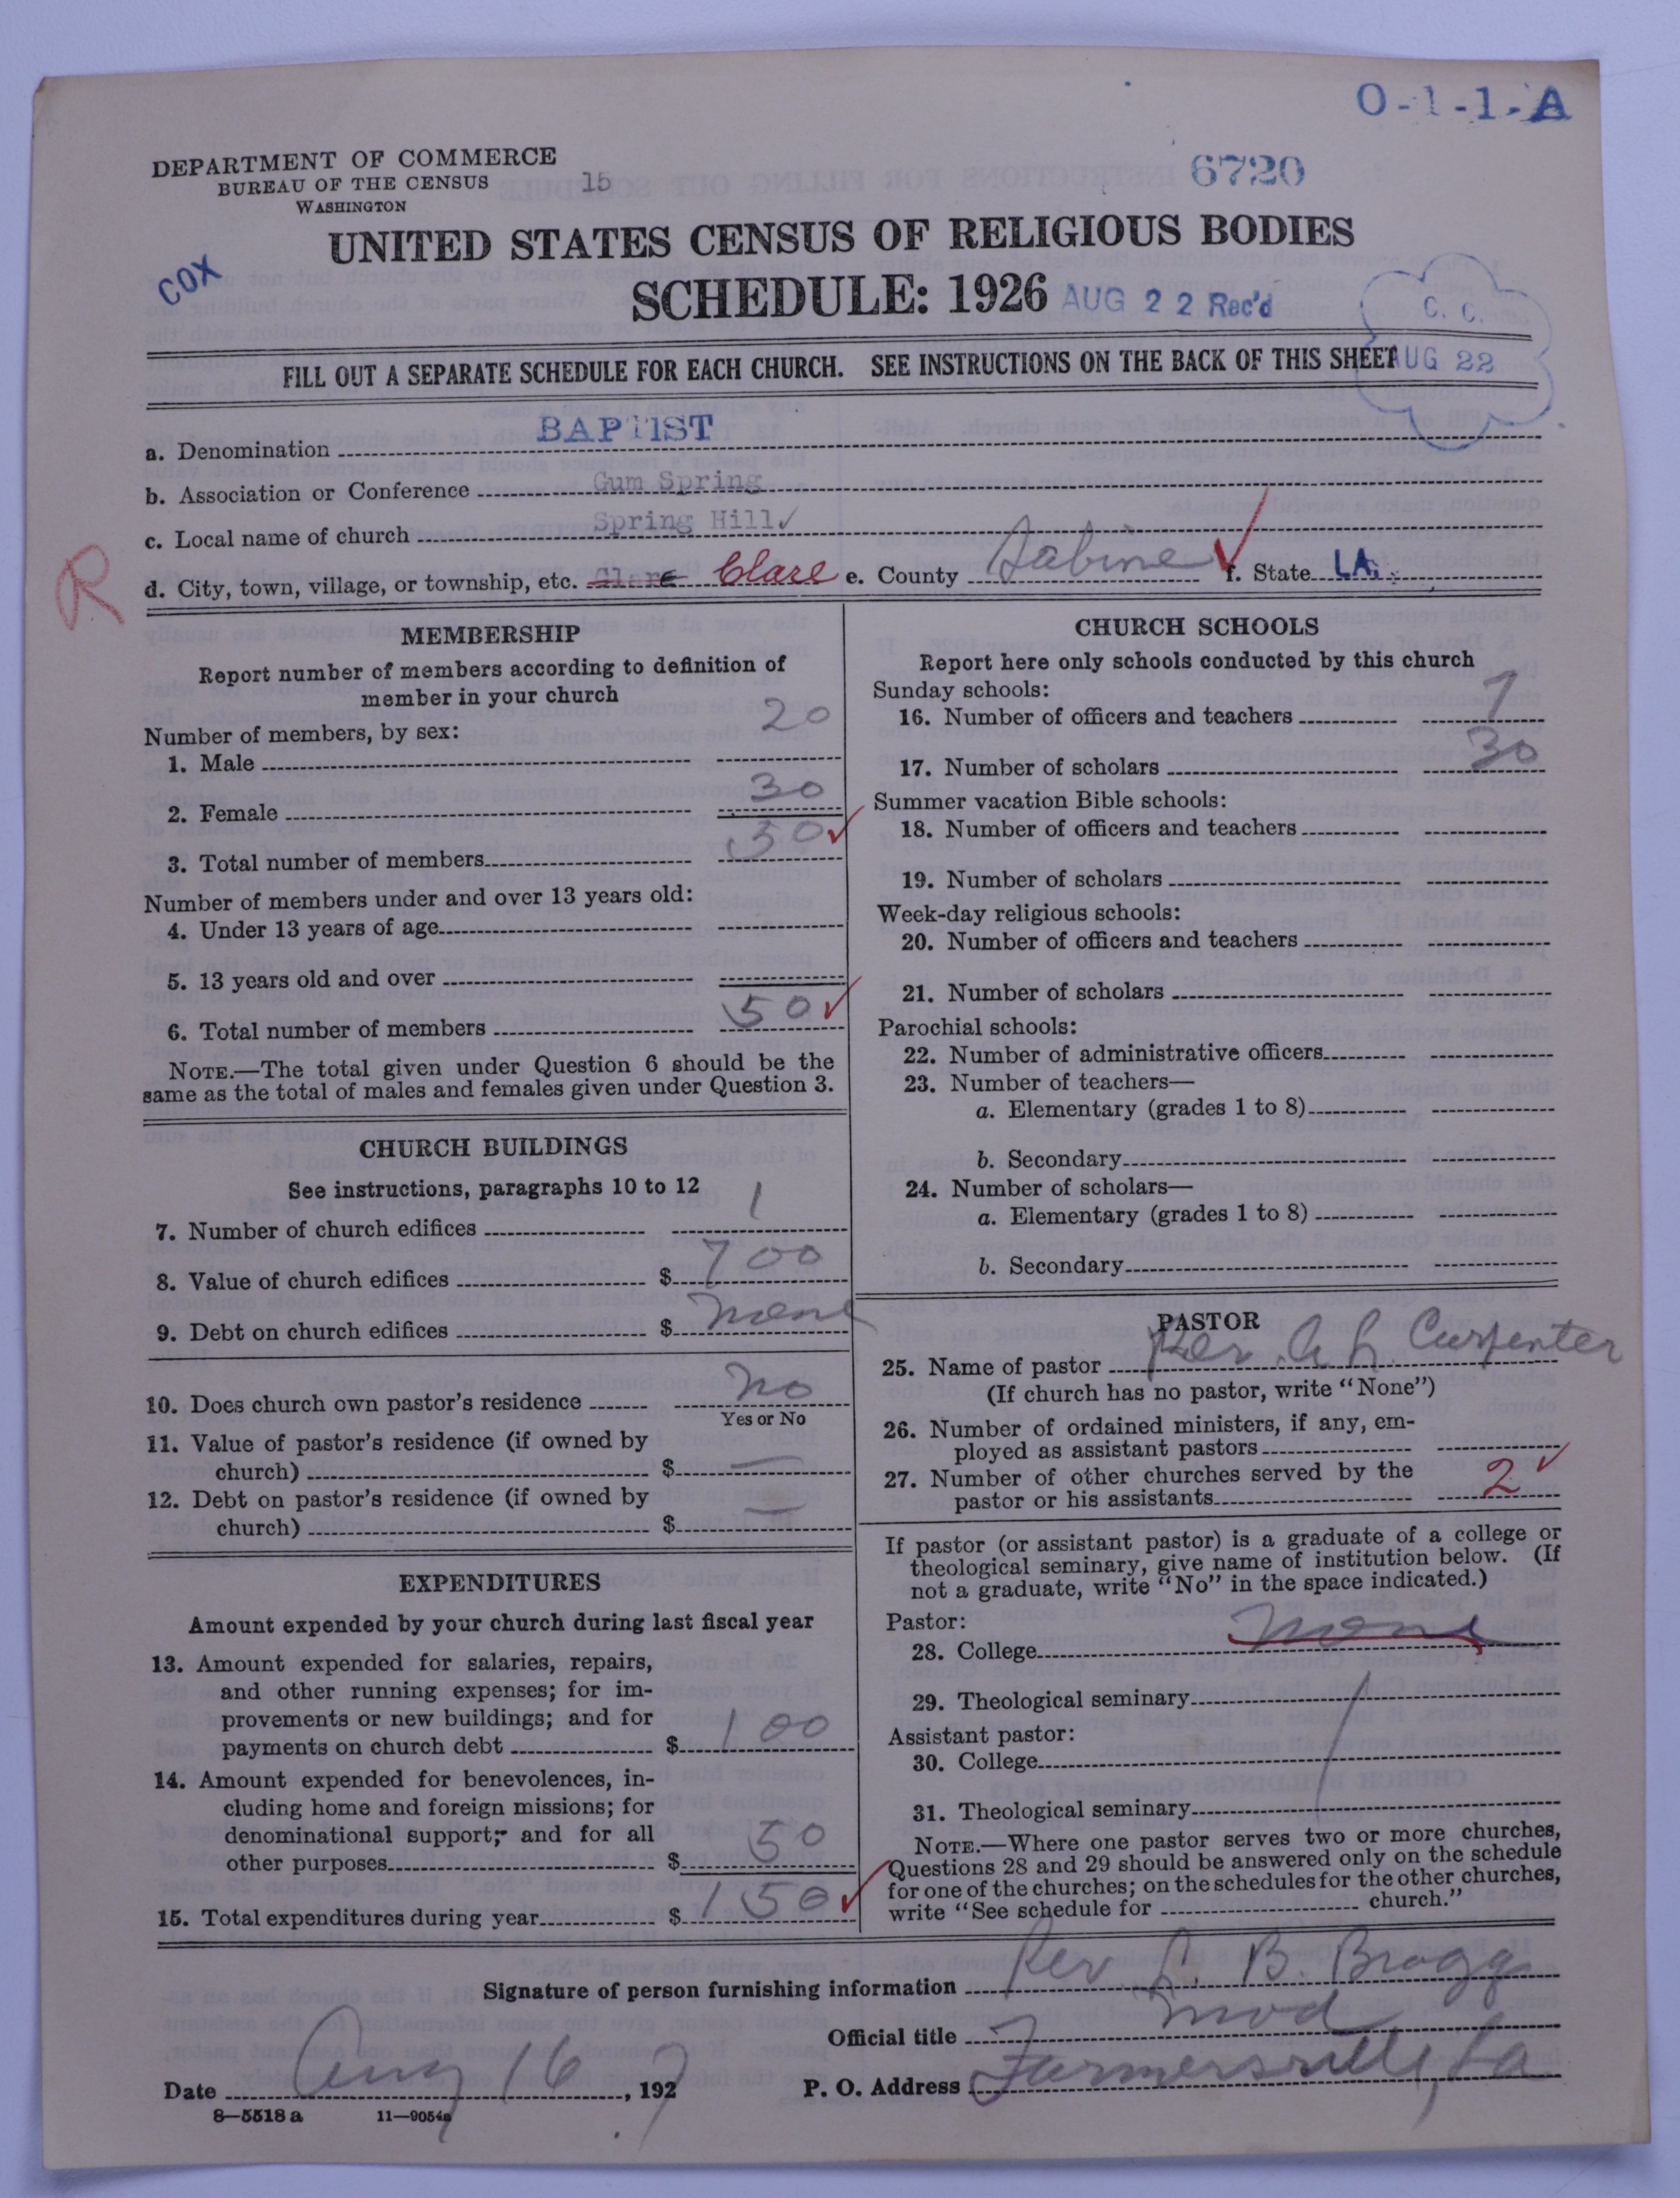 O-1-1-A
DEPARTMENT OF COMMERCE
BUREAU OF THE CENSUS
WASHINGTON
15
6720
UNITED STATES CENSUS OF RELIGIOUS BODIES
COX
SCHEDULE: 1926
AUG 22 Rec'd
C. C.
AUG 22
FILL OUT A SEPARATE SCHEDULE FOR EACH CHURCH. SEE INSTRUCTIONS ON THE BACK OF THIS SHEET
a. Denomination BAPTIST
b. Association or Conference Gum Spring
c. Local name of church Spring Hill ✓
R
d. City, town, village, or township, etc. Clare Clare e. County Sabine ✓ f. State LA.
MEMBERSHIP
Report number of members according to definition of
member in your church
Number of members, by sex:
1. Male 20
2. Female 30
3. Total number of members 50 ✓
Number of members under and over 13 years old:
4. Under 13 years of age
5. 13 years old and over
6. Total number of members 50 ✓
NOTE.—The total given under Question 6 should be the
same as the total of males and females given under Question 3.
CHURCH BUILDINGS
See instructions, paragraphs 10 to 12
7. Number of church edifices 1
8. Value of church edifices $ 700
9. Debt on church edifices $ none
10. Does church own pastor's residence no
Yes or No
11. Value of pastor's residence (if owned by
church) $ —
12. Debt on pastor's residence (if owned by
church) $ —
EXPENDITURES
Amount expended by your church during last fiscal year
13. Amount expended for salaries, repairs,
and other running expenses; for im-
provements or new buildings; and for
payments on church debt $ 100
14. Amount expended for benevolences, in-
cluding home and foreign missions; for
denominational support; and for all
other purposes $ 50
15. Total expenditures during year $ 150 ✓
CHURCH SCHOOLS
Report here only schools conducted by this church
Sunday schools:
16. Number of officers and teachers 7
17. Number of scholars 30
Summer vacation Bible schools:
18. Number of officers and teachers
19. Number of scholars
Week-day religious schools:
20. Number of officers and teachers
21. Number of scholars
Parochial schools:
22. Number of administrative officers
23. Number of teachers—
a. Elementary (grades 1 to 8)
b. Secondary
24. Number of scholars—
a. Elementary (grades 1 to 8)
b. Secondary
PASTOR
25. Name of pastor Rev. A L. Carpenter
(If church has no pastor, write "None")
26. Number of ordained ministers, if any, em-
ployed as assistant pastors
27. Number of other churches served by the
pastor or his assistants 2 ✓
If pastor (or assistant pastor) is a graduate of a college or
theological seminary, give name of institution below. (If
not a graduate, write "No" in the space indicated.)
Pastor:
28. College none
29. Theological seminary
Assistant pastor:
30. College
31. Theological seminary
NOTE.—Where one pastor serves two or more churches,
Questions 28 and 29 should be answered only on the schedule
for one of the churches; on the schedules for the other churches,
write "See schedule for church."
Signature of person furnishing information Rev L. B. Bragg
Official title Mod
Date Aug 16, 1927 P. O. Address Farmersville, La
8—5518 a 11—9054a